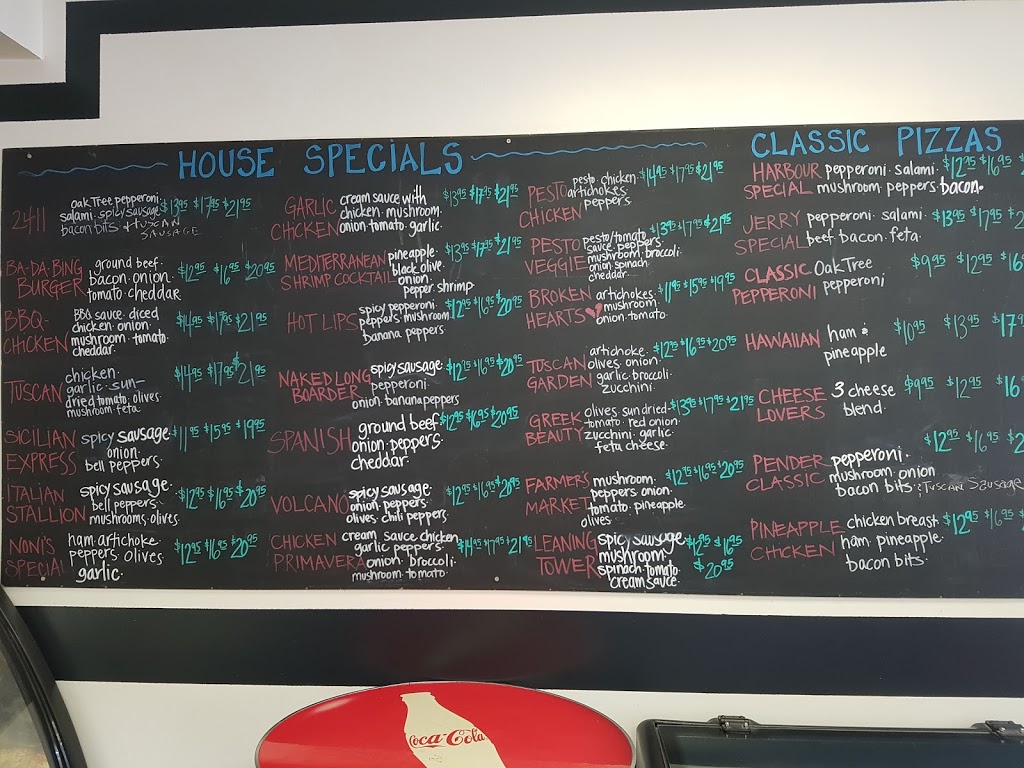 HOUSE SPECIALS
2411 oak Tree pepperoni $13.95 $17.95 $21.95
salami. spicy sausage
bacon bits. + TUSCAN
SAUSAGE
BA-DA-BING BURGER ground beef. $12.95 $16.95 $20.95
bacon. onion.
tomato. cheddar
BBQ- CHICKEN BBQ sauce. diced $14.95 $17.95 $21.95
chicken. onion.
mushroom. tomato.
cheddar.
TUSCAN chicken. $14.95 $17.95 $21.95
garlic. sun-
dried tomato. olives.
mushroom. feta
SICILIAN EXPRESS spicy sausage. $11.95 $15.95 $19.95
onion.
bell peppers.
ITALIAN STALLION spicy sausage. $12.95 $16.95 $20.95
bell peppers.
mushrooms. olives.
NONI'S SPECIAL ham. artichoke $12.95 $16.95 $20.95
peppers. olives
garlic.
GARLIC CHICKEN cream sauce with $13.95 $17.95 $21.95
chicken. mushroom.
onion. tomato. garlic.
MEDITERRANEAN SHRIMP COCKTAIL pineapple $13.95 $17.95 $21.95
black olive.
onion.
pepper. shrimp
HOT LIPS spicy pepperoni. $12.95 $16.95 $20.95
peppers. mushroom
banana peppers
NAKED LONG BOARDER spicy sausage. $12.95 $16.95 $20.95
pepperoni.
onion. banana peppers
SPANISH ground beef $12.95 $16.95 $20.95
onion. peppers.
cheddar.
VOLCANO spicy sausage. $12.95 $16.95 $20.95
onion. peppers.
olives. chili peppers.
CHICKEN PRIMAVERA cream sauce. chicken $14.95 $17.95 $21.95
garlic. peppers.
onion. broccoli.
mushroom. tomato.
PESTO CHICKEN pesto. chicken. $14.95 $17.95 $21.95
artichokes.
peppers.
PESTO VEGGIE pesto/tomato $13.95 $17.95 $21.95
sauce. peppers.
mushroom. broccoli.
onion. spinach.
cheddar.
BROKEN HEARTS artichokes. $11.95 $15.95 $19.95
mushroom.
onion. tomato.
TUSCAN GARDEN artichoke. $12.95 $16.95 $20.95
olives. onion.
garlic. broccoli.
zucchini.
GREEK BEAUTY olives. sun dried- $13.95 $17.95 $21.95
tomato. red onion
zucchini. garlic.
feta cheese.
FARMER'S MARKET mushroom. $12.95 $16.95 $20.95
peppers. onion.
tomato. pineapple
olives.
LEANING TOWER spicy sausage $12.95 $16.95
mushroom. $20.95
spinach. tomato.
cream sauce.
CLASSIC PIZZAS
HARBOUR SPECIAL pepperoni. salami. $12.95 $16.95
mushroom. peppers. bacon.
JERRY SPECIAL pepperoni. salami. $13.95 $17.95
beef. bacon. feta.
CLASSIC PEPPERONI Oak Tree $9.95 $12.95 $16
pepperoni
HAWAIIAN ham & $10.95 $13.95 $17
pineapple
CHEESE LOVERS 3 cheese $9.95 $12.95 $16
blend.
PENDER CLASSIC pepperoni. $12.95 $16.95
mushroom. onion
bacon bits. & TUSCAN SAUSAGE
PINEAPPLE CHICKEN chicken breast $12.95 $16.95
ham. pineapple.
bacon bits.
Coca-Cola